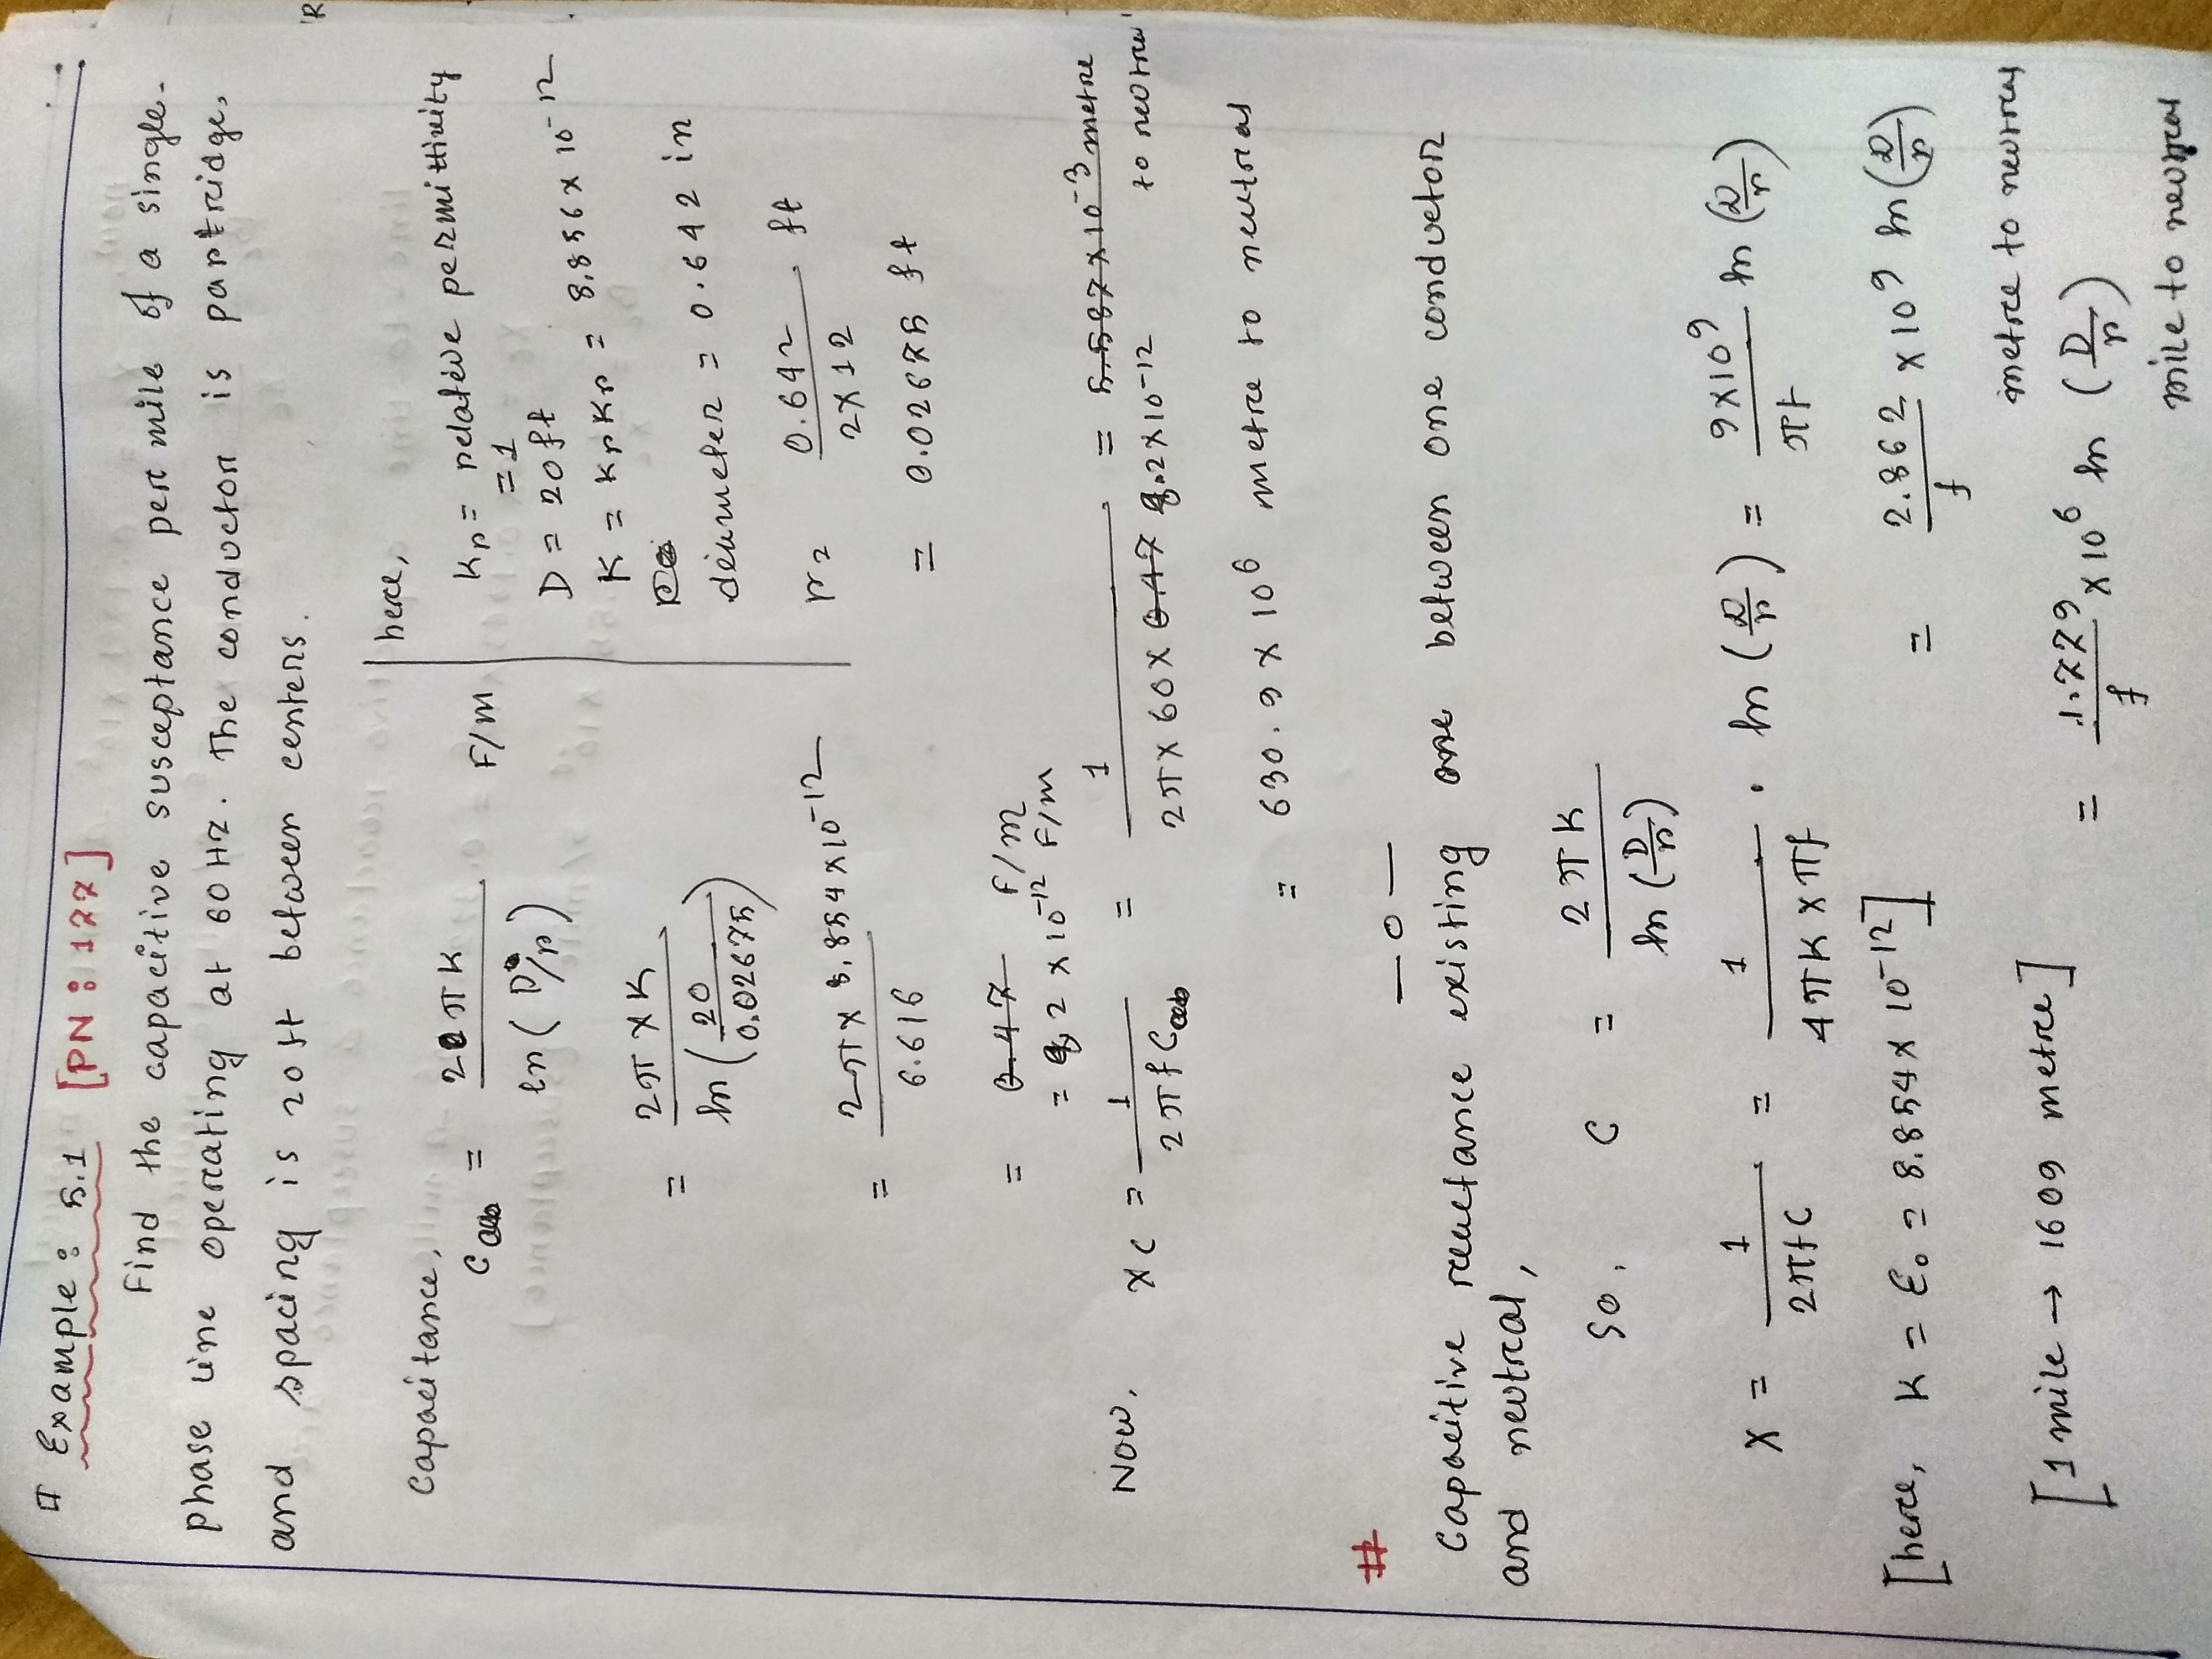 # Example: 5.1 [PN: 177]
Find the capacitive susceptance per mile of a single-
phase line operating at 60 Hz. The conductor is partridge,
and spacing is 20 ft between centers.
Capacitance,
Cab = 2πK / ln (D/r) F/m
= 2π × K / ln (20 / 0.02675)
= 2π × 8.854 × 10⁻¹² / 6.616
= 0.47 F/m
= 8.2 × 10⁻¹² F/m
here,
Kr = relative permittivity
= 1
D = 20 ft
K = Kr Kr = 8.856 × 10⁻¹²
diameter = 0.642 in
r = 0.642 / 2×12 ft
= 0.02675 ft
Now, Xc = 1 / 2πf Cab = 1 / 2π × 60 × 0.47 8.2×10⁻¹² = 5.587×10⁻³ metre to neutral
= 630.9 × 10⁶ metre to neutral
— 0 —
#
Capacitive reactance existing one between one conductor
and neutral,
So, C = 2πK / ln (D/r)
X = 1 / 2πfC = 1 / 4πK × πf . ln (D/r) = 9×10⁹ / πf ln (D/r)
[here, K = ε₀ = 8.854 × 10⁻¹²] = 2.862 / f × 10⁹ ln (D/r)
metre to neutral
[1 mile → 1609 metre] = 1.779 / f × 10⁶ ln (D/r)
mile to neutral